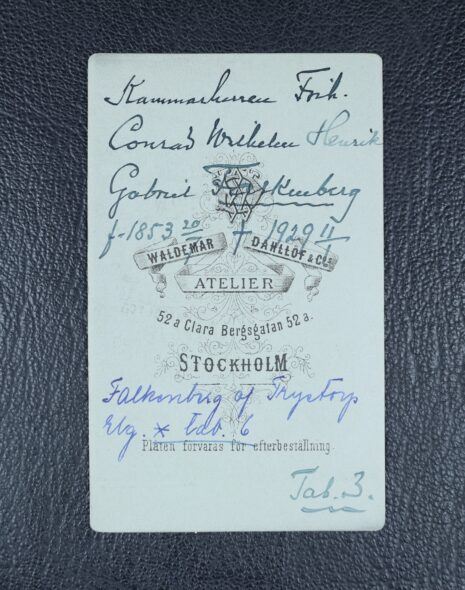 Kammarherren Frih.
Conrad Wilhelm Henrik
Gabriel Falkenberg
f. 1853 20/7 † 1929 11/1
WALDEMAR DAHLLÖF & Co
ATELIER
52a Clara Bergsgatan 52a.
STOCKHOLM
Falkenberg af Trystorp
Elg. * tab. 6
Plåten förvaras för efterbeställning.
Tab. 3.